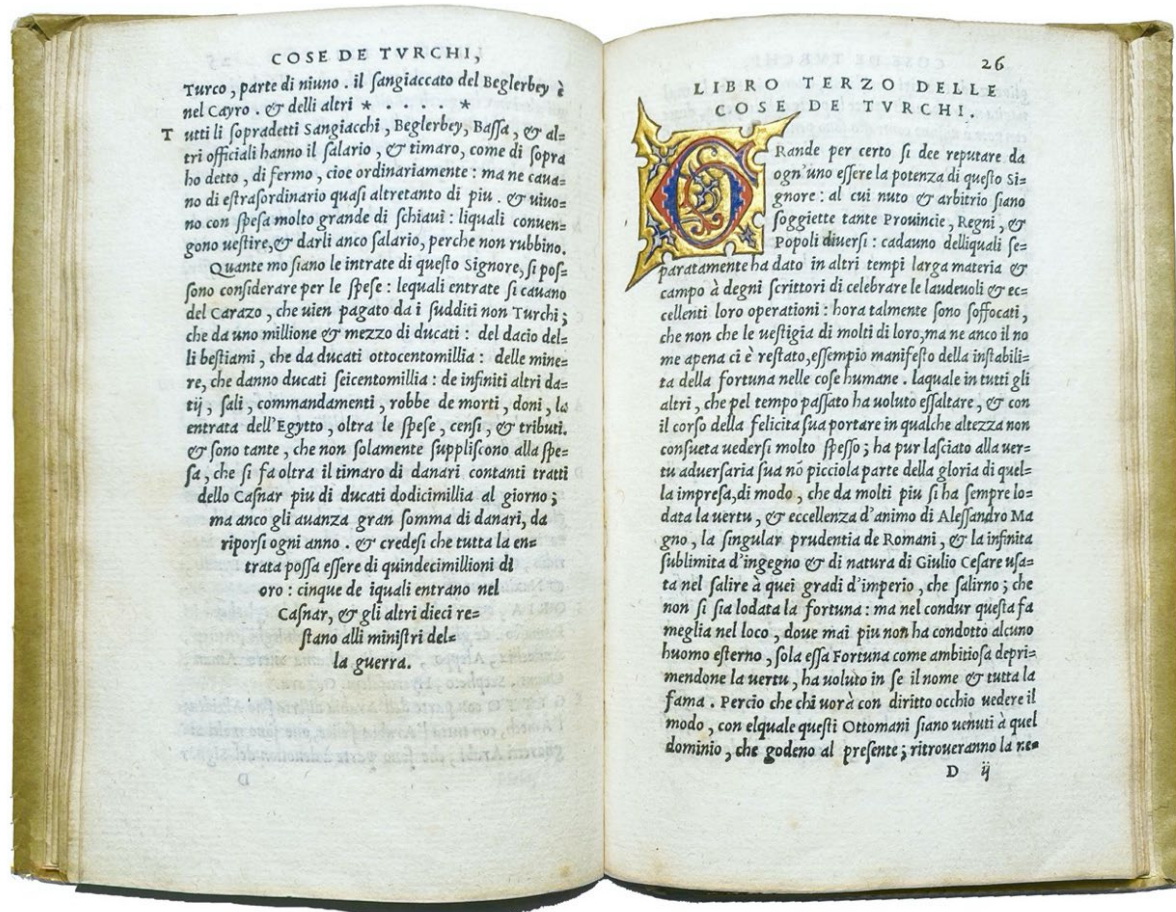 COSE DE TVRCHI,
Turco, parte di niuno. il sangiaccato del Beglerbey è
nel Cayro. & delli altri * . . . . *
T utti li sopradetti Sangiacchi, Beglerbey, Bassa, & al=
tri officiali hanno il salario, & timaro, come di sopra
ho detto, di fermo, cioe ordinariamente: ma ne caua=
no di estraordinario quasi altretanto di piu. & uiuo=
no con spesa molto grande di schiaui: liquali conuen=
gono uestire, & darli anco salario, perche non rubbino.
Quante mo siano le intrate di questo Signore, si pos=
sono considerare per le spese: lequali entrate si cauano
del Carazo, che uien pagato da i sudditi non Turchi;
che da uno millione & mezzo di ducati: del dacio del=
li bestiami, che da ducati ottocentomillia: delle mine=
re, che danno ducati seicentomillia: de infiniti altri da=
tij, sali, commandamenti, robbe de morti, doni, la
entrata dell'Egytto, oltra le spese, censi, & tributi.
& sono tante, che non solamente suppliscono alla spe=
sa, che si fa oltra il timaro di danari contanti tratti
dello Casnar piu di ducati dodicimillia al giorno;
ma anco gli auanza gran somma di danari, da
riporsi ogni anno. & credesi che tutta la en=
trata possa essere di quindecimillioni di
oro: cinque de iquali entrano nel
Casnar, & gli altri dieci re=
stano alli ministri del=
la guerra.
26
LIBRO TERZO DELLE
COSE DE TVRCHI.
G Rande per certo si dee reputare da
ogn'uno essere la potenza di questo Si=
gnore: al cui nuto & arbitrio siano
soggiette tante Prouincie, Regni, &
Popoli diuersi: cadauno delliquali se=
paratamente ha dato in altri tempi larga materia &
campo à degni scrittori di celebrare le laudeuoli & ec=
cellenti loro operationi: hora talmente sono soffocati,
che non che le uestigia di molti di loro, ma ne anco il no
me apena ci è restato, essempio manifesto della instabili=
ta della fortuna nelle cose humane. laquale in tutti gli
altri, che pel tempo passato ha uoluto essaltare, & con
il corso della felicita sua portare in qualche altezza non
consueta uedersi molto spesso; ha pur lasciato alla uer=
tu aduersaria sua nō picciola parte della gloria di quel=
la impresa, di modo, che da molti piu si ha sempre lo=
data la uertu, & eccellenza d'animo di Alessandro Ma
gno, la singular prudentia de Romani, & la infinita
sublimita d'ingegno & di natura di Giulio Cesare usa=
ta nel salire à quei gradi d'imperio, che salirno; che
non si sia lodata la fortuna: ma nel condur questa fa
meglia nel loco, doue mai piu non ha condotto alcuno
huomo esterno, sola essa Fortuna come ambitiosa depri=
mendone la uertu, ha uoluto in se il nome & tutta la
fama. Percio che chi uorà con diritto occhio uedere il
modo, con elquale questi Ottomani siano uenuti à quel
dominio, che godeno al presente; ritroueranno la ne=
D ij